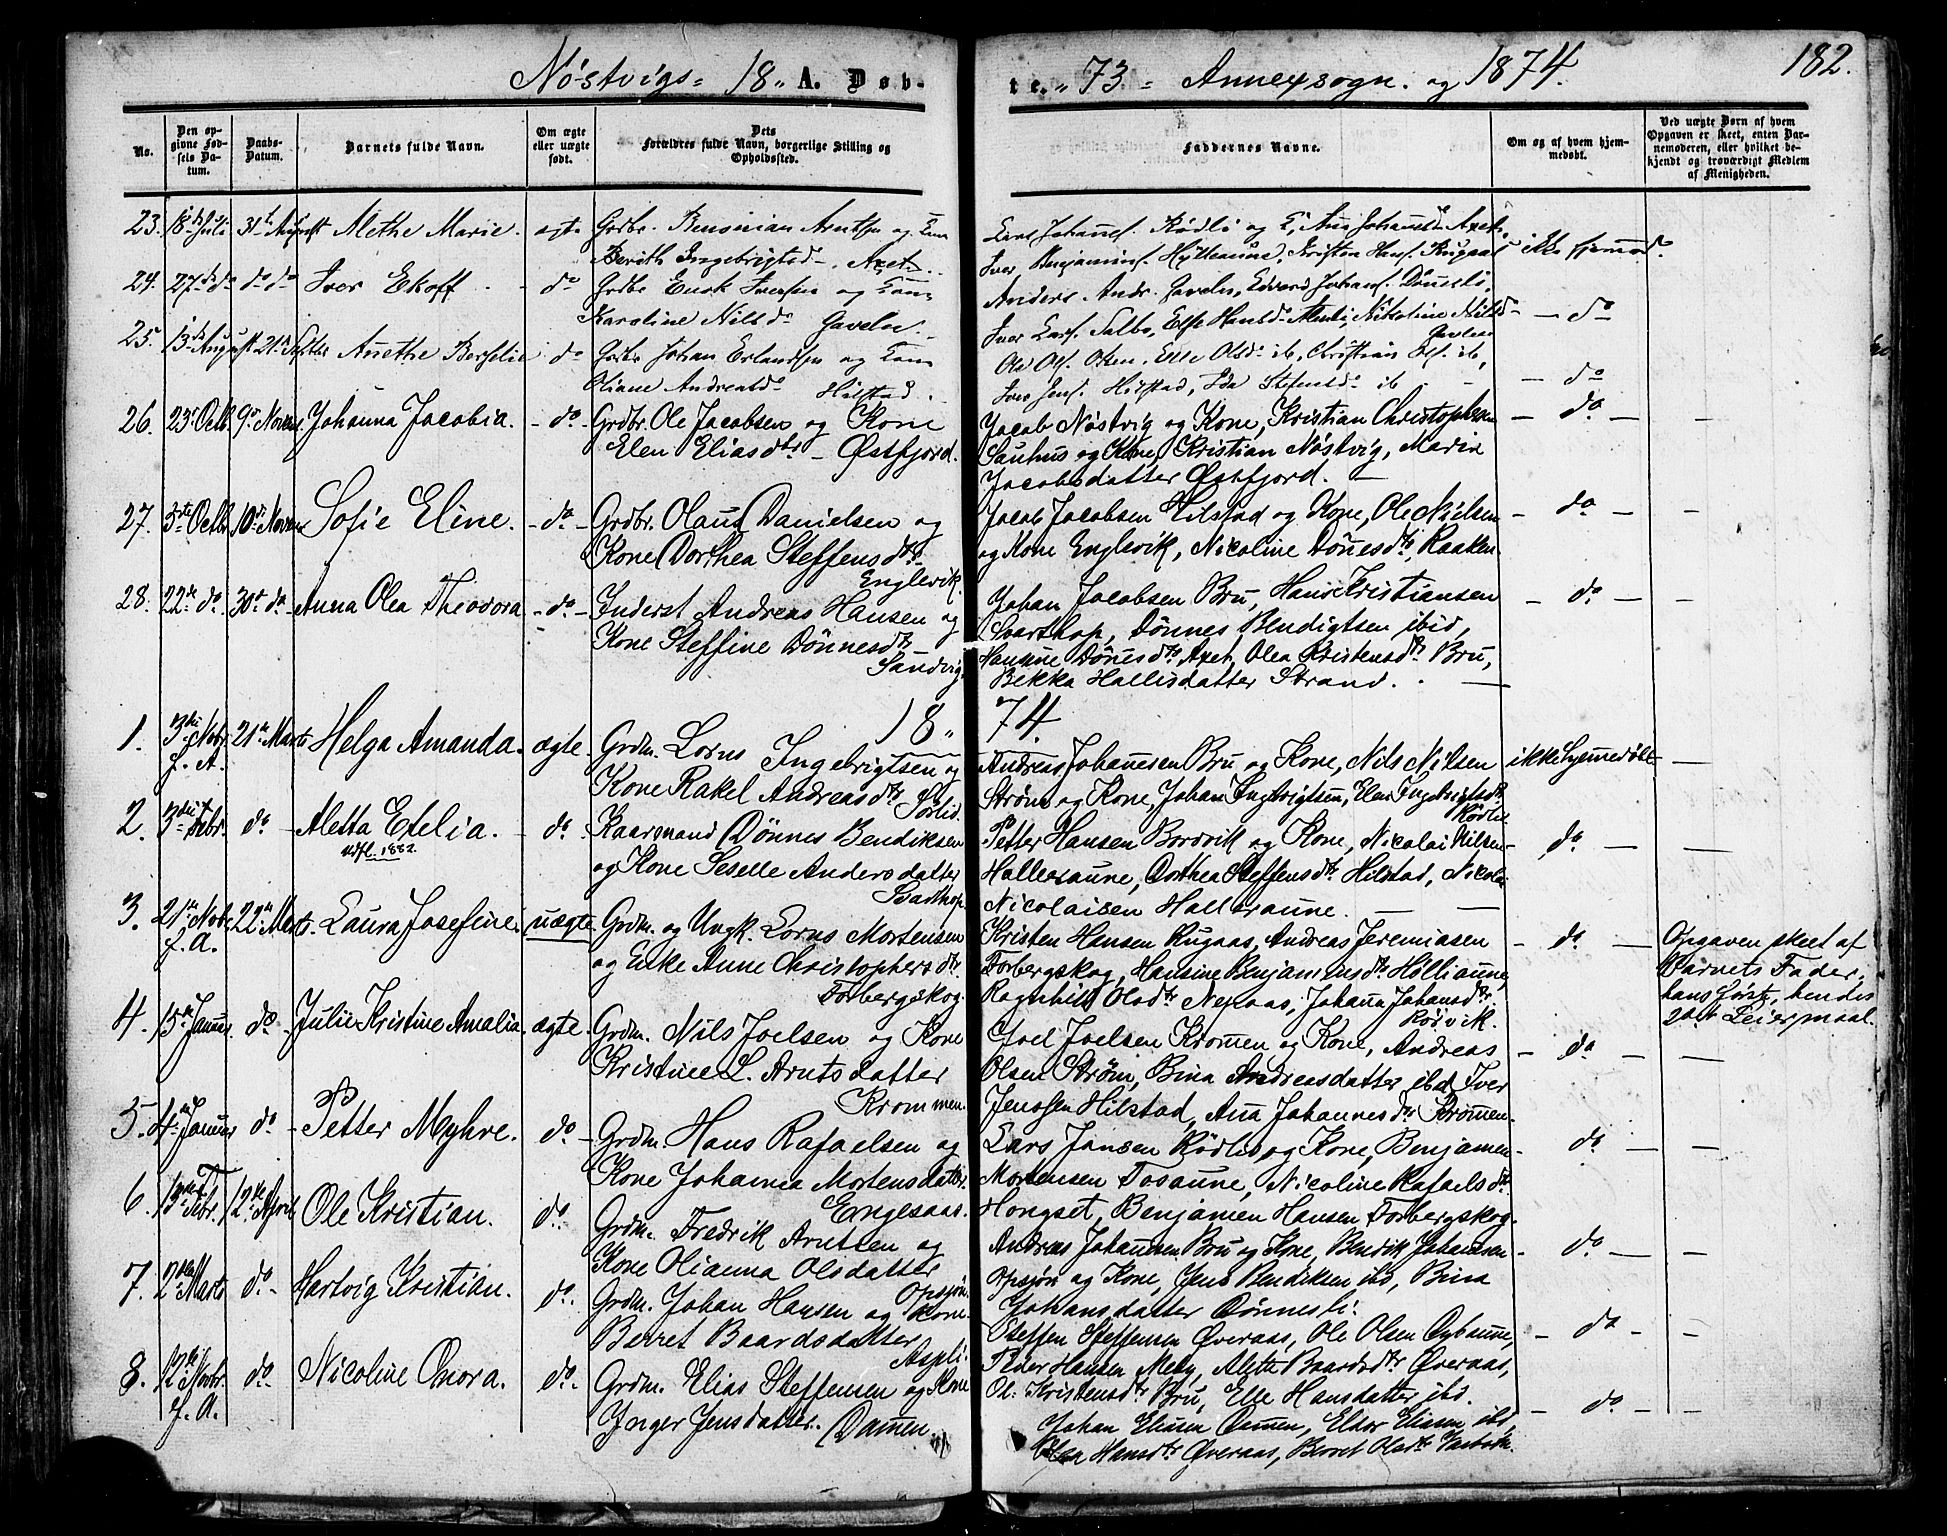 Nöstvigs= 18" A. Døb-
te. "73= Annexsogn. og 1874. 182.
No.
Den opgivne Fødsels Datum.
Daabs-Datum.
Barnets fulde Navn.
Om ægte eller uægte født.
Dets Forældres fulde Navn, borgerlige Stilling og Opholdssted.
Faddernes Navne.
Om og af hvem hjemmedøbt.
Ved uægte Børn af hvem Opgaven er skeet, enten Barnemoderen, eller hvilket bekjendt og troværdigt Medlem af Menigheden.
23. 18de Juli 31te August Alethe Marie. ægte Grdbr. Arntsen og
Berith Ingebrigtsd. Axet.
Lars Johans. Rödli og
Iver Benjamins. Hylleaune, Kristen Hans. Rugaas ikke hjemmed.
24. 27de do do do Iver Ekoff do Grdbr Iversen og
Karoline Nilsd. Gaveln.
Anders Andr. Gaveln, Edvard Johans. Dönnesli,
Iver Lars. Salbo, Else Hansd. Nikoline Nilsd. Gaveln – do
25. 13de August 21de Septbr Anethe Berselie do Grdbr Johan Erlandsen og
Oliane Andreasd. Hilstad.
Ole Ols. Elle Olsd. ib, Christian Ols. ib,
Iver Jens. Hilstad, Ida Stefensd. ib – do
26. 23de Octb. 9de Novem. Johanna Jacobia. – do – Grdbr. Ole Jacobsen og Kone
Elen Eliasdtr – Østfjord.
Jacob Nöstvig og Kone, Kristian Christophersen
Sauhus og Kone, Kristian Nöstvig, Maria
Jacobsdatter Østfjord. – – do –
27. 3die Octb. 10de Novem Sofie Eline. – do – Grdbr. Olaus Danielsen og
Kone Dorthea Steffensdtr
Englevik.
Jacob Jacobsen Hilstad og Kone, Ole Nielsen
og Kone Englevik, Nicoline Dönesdtr Raaken – do –
28. 22de do 30de do Anna Olea Theodora – do – Inderst Andreas Hansen og
Kone Steffine Dönnesdtr
Sandvig
Johan Jacobsen Bru, Hans Kristiansen
Svarthop, Dönnes Bendigtsen ibid,
Hansine Dönesdtr Axet, Olea Kristensdtr Bru,
Bekka Hallisdatter Strand. – do –
18" 74.
1. 3die Novbr. f. A. 21de Marts Helga Amanda. ægte Grdm. Lorns Ingebrigtsen og
Kone Rakel Andreasdtr
Sörlid.
Andreas Johannesen Bru og Kone, Nils Nilsen
Ström og Kone, Johan Ingebrigtsen, Elen Ingebrigtsdtr
Rödli ikke hjemmedöbt –
2. 3die Febr. do – Aletta Etelia. – do – Kaarmand Dönnes Bendiksen
Udfl. 1882.
og Kone Seselle Andersdatter
Svarthop
Petter Hansen Bordvik og Kone, Nicolai Nilsen
Halleraune, Dorthea Steffensdtr Hilstad, Nicolai
Nicolaisen Halleraune. – do –
3. 21de Novb. f. A. 22de Marts. Laura Josefine. uægte Grdm. og Ungk. Lorns Mortensen
og Enke Anne Christophersdtr
Forbergskog.
Kristen Hansen Rugaas, Andreas Jeremiasen
Forbergskog, Hansine Benjaminsdtr Holliaune,
Ragnhild Olsdtr Nepaas, Johanna Johansdtr
Rösvik. – do –
Opgaven skeet af
Barnets Fader,
hans förste, hendes
2det Leiermaal.
4. 15de Januar do – Julie Kristine Amalia. ægte – Grdm. Nils Joelsen og Kone
Kristine L. Arntsdatter
Krommen.
Joel Joelsen Krommen og Kone, Andreas
Olsen Ström, Bina Andreasdatter ibd, Iver
Jenssen Hilstad, Ana Johannesdtr Kromen. – do –
5. 4de Januar do – Petter Myhre. do – Grdm. Hans Rafaelsen og
Kone Johanna Mortensdatter
Engesaas.
Lars Jansen Rödli og Kone, Benjamen
Mortensen Fosaune, Nicoline Rafaelsdtr
Hongset, Benjamen Hansen Forbergskog. – do –
6. 13de Febr. 12te April Ole Kristian. do – Grdm. Fredrik Arntsen og
Kone Olianna Olsdatter
Opsjön.
Andreas Johannesen Bru og Kone, Bendik Johansen
Opsjön og Kone, Jens Bendiksen ibd, Bina
Johansdatter Dönnesli. – do –
7. 2den Marts do – Hartvig Kristian. do – Grdm. Johan Hansen og Kone
Berret Baardsdatter
Aspli.
Steffen Steffensen Øveraas, Ole Olsen
Peder Hansen Meby, Alette Baardsdtr Øveraas,
Ol. Kristensdtr Bru, Elle Hansdatter ibd. – do –
8. 12te Novbr. f. A. do – Nicoline Onora. do – Grdm. Elias Steffensen og Kone
Inger Jensdatter. Damen.
Johan Eliasen Damen, Eliasen ibd,
Olea Hansdtr Øveraas, Berret Olsdtr – do –